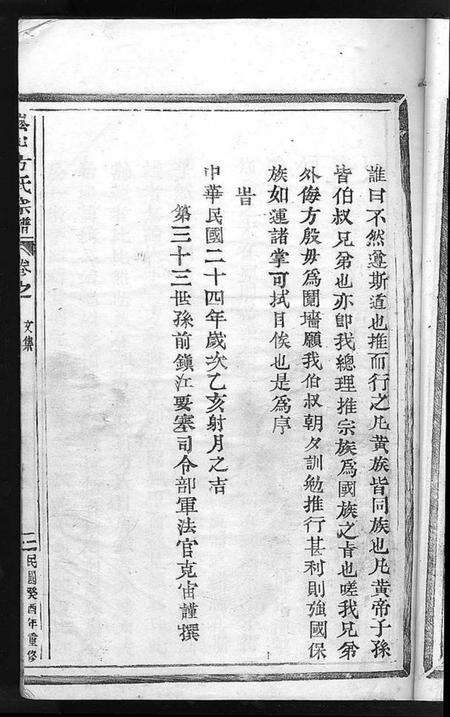 誰曰不然遵斯道也推而行之凡黃族皆同族也凡黃帝子孫
皆伯叔兄弟也亦卽我總理推宗族爲國族之旨也嗟我兄弟
外侮方殷毋爲鬩墻願我伯叔朝夕訓勉推行甚利則強國保
族如運諸掌可拭目俟也是爲序
旹
中華民國二十四年歲次乙亥射月之吉
第三十三世孫前鎭江要塞司令部軍法官克宙謹撰
方氏宗譜
卷之
文集
民國癸酉年重修